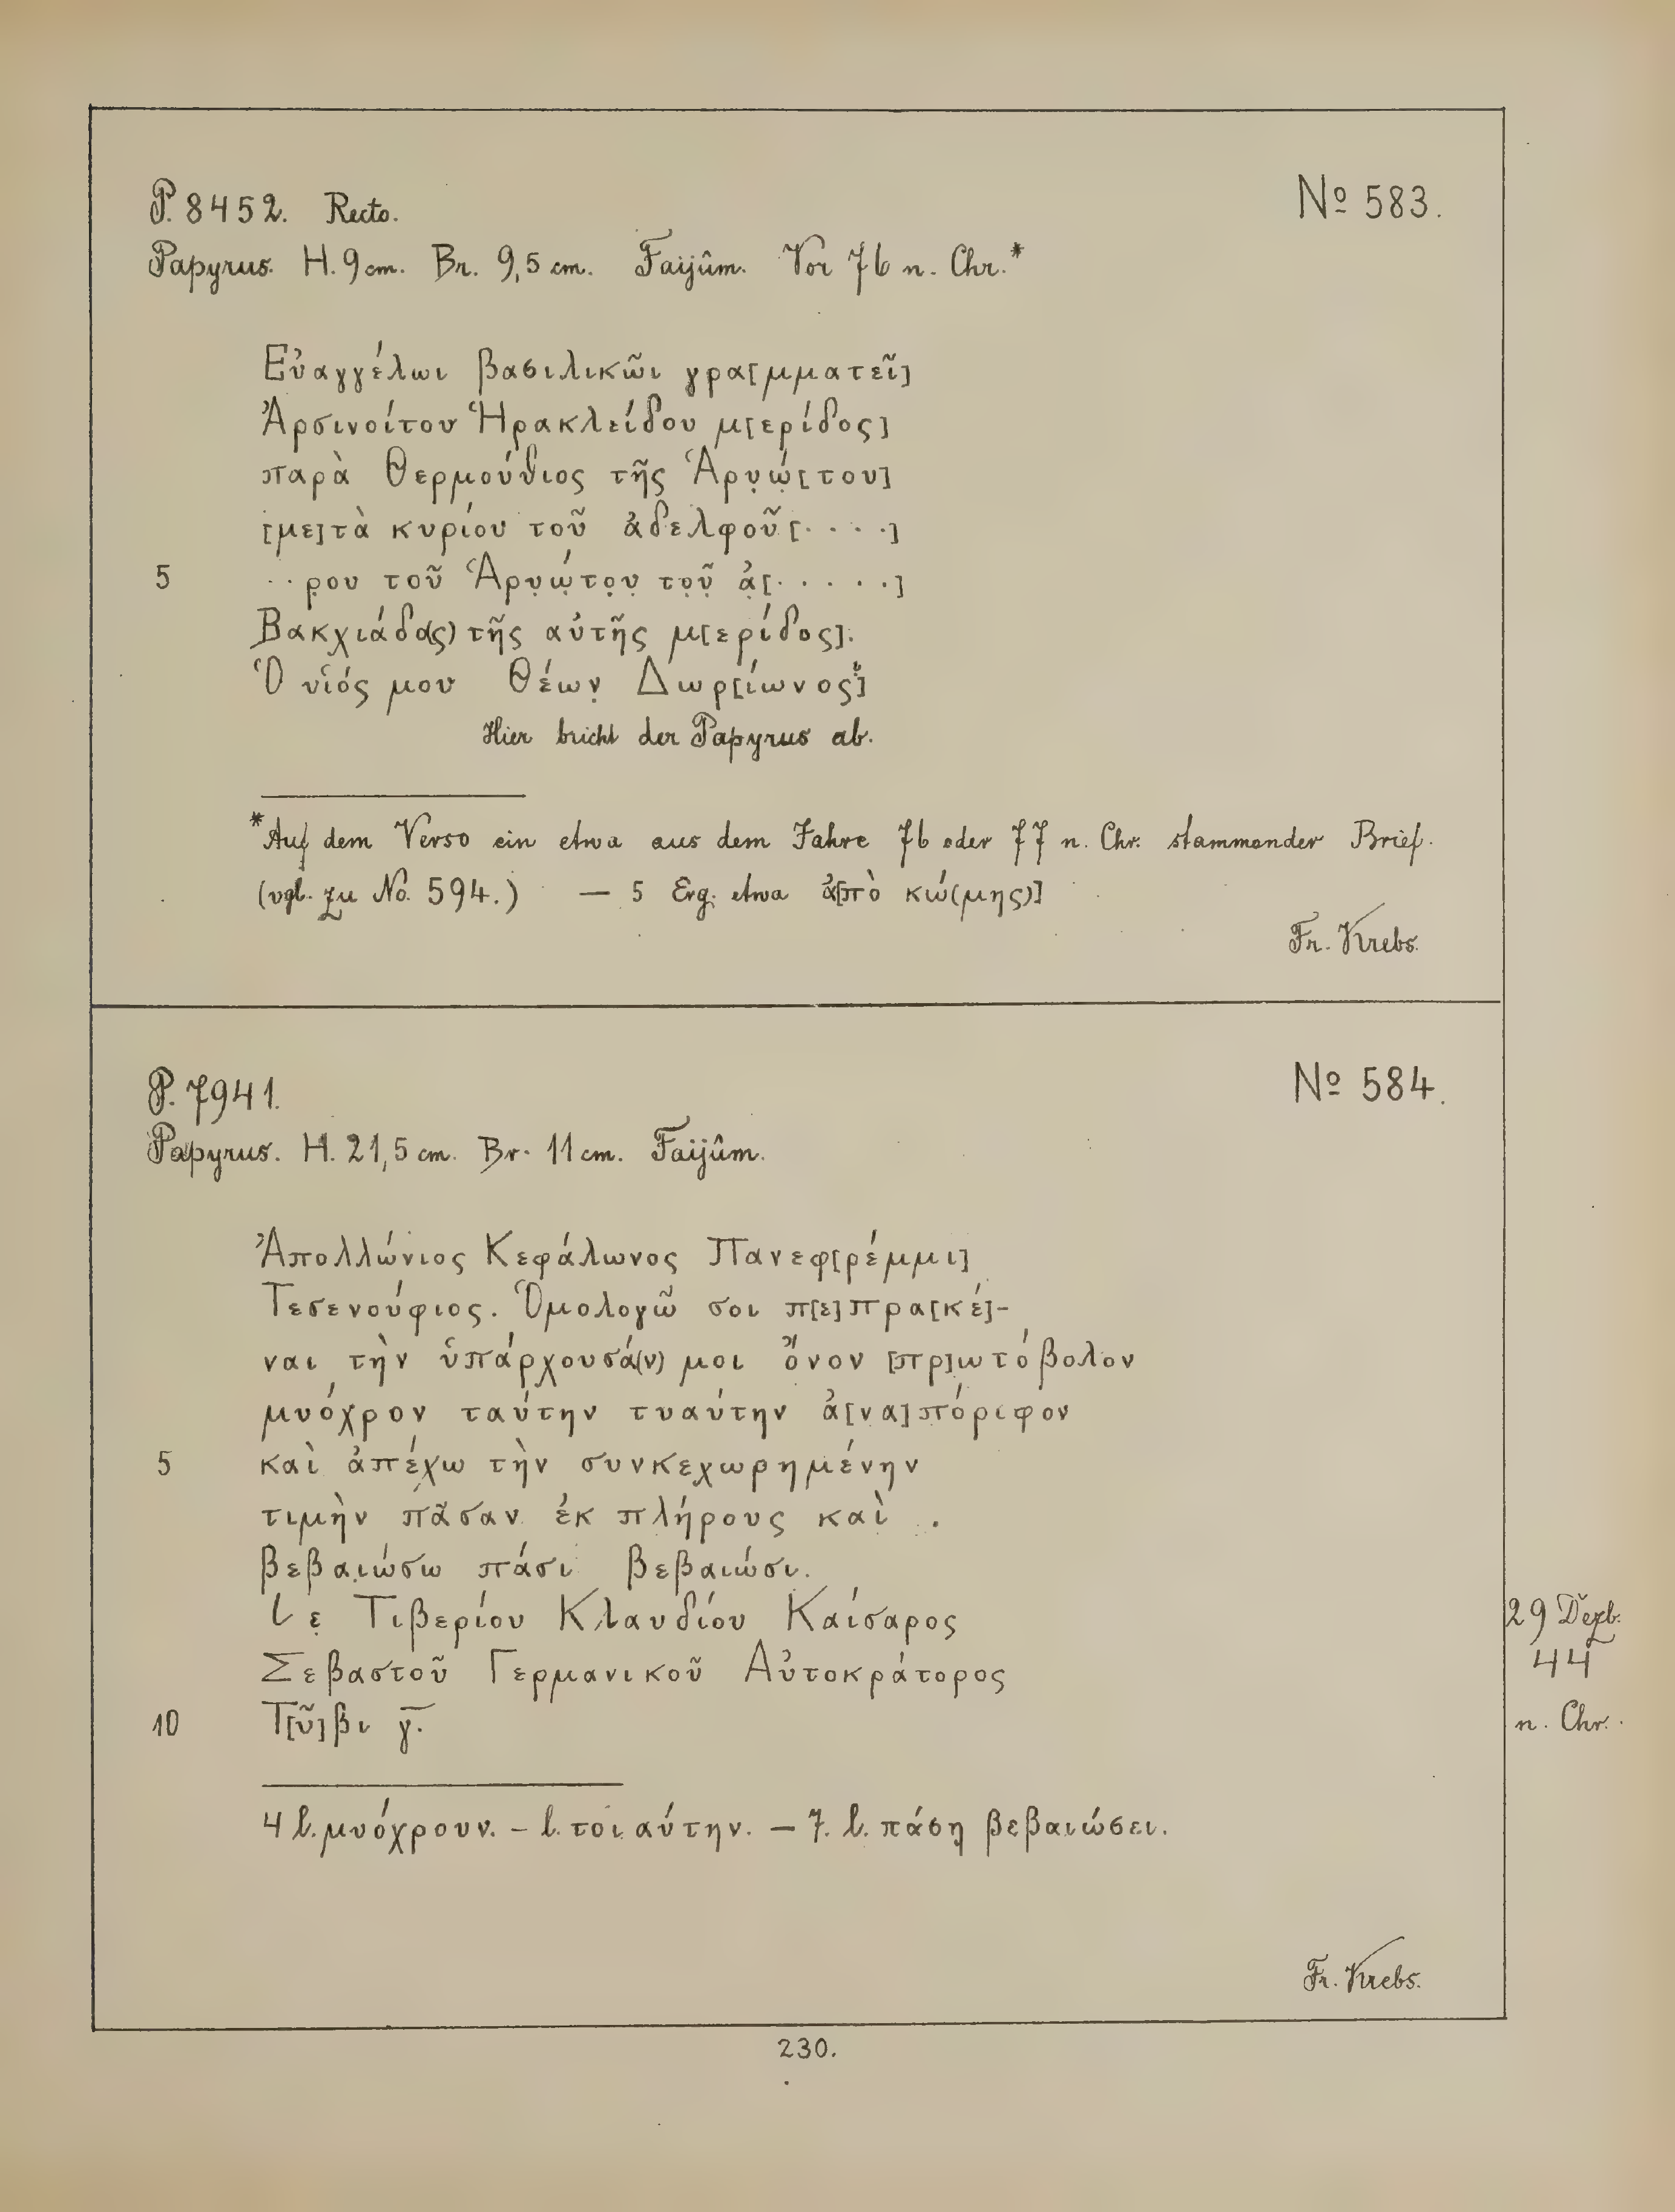 P. 8452. Recto. No 583.
Papyrus. H. 9 cm. Br. 9,5 cm. Faijûm. Vor 76 n. Chr.*
Εὐαγγέλωι βασιλικῶι γρα[μματεῖ]
Ἀρσινοίτου Ἡρακλείδου μ[ερίδος]
παρὰ Θερμούθιος τῆς Ἁρυώ̣[του]
[με]τὰ κυρίου τοῦ ἀδελφοῦ [· · · ·]
5 ··ρ̣ου τοῦ Ἁρυ̣ώ̣το̣υ̣ το̣ῦ̣ ἀ̣[· · · · ·]
Βακχιάδα(ς) τῆς αὐτῆς μ[ερίδος].
Ὁ υἱός μου Θέων̣ Δωρ[ίωνος?]
Hier bricht der Papyrus ab.
*Auf dem Verso ein etwa aus dem Jahre 76 oder 77 n. Chr. stammender Brief.
(vgl. zu No. 594.) — 5 Erg. etwa ἀ[πὸ κώ(μης)]
Fr. Krebs.
P. 7941. No 584.
Papyrus. H. 21,5 cm. Br. 11 cm. Faijûm.
Ἀπολλώνιος Κεφάλωνος Πανεφ[ρέμμι]
Τεσενούφιος. Ὁμολογῶ σοι π[ε]πρα[κέ]-
ναι τὴν ὑπάρχουσά(ν) μοι ὄνον [πρ]ωτόβολον
μυόχρον ταύτην τυαύτην ἀ[να]πόριφον
5 καὶ ἀπέχω τὴν συνκεχωρημένην
τιμὴν πᾶσαν ἐκ πλήρους καὶ .
βεβαιώσω πάσι βεβαιώσι.
L ε̣ Τιβερίου Κλαυδίου Καίσαρος 29 Dezb.
Σεβαστοῦ Γερμανικοῦ Αὐτοκράτορος 44
10 Τ[ῦ]βι γ̅. n. Chr.
4 l. μυόχρουν. – l. τοιαύτην. — 7. l. πάσῃ βεβαιώσει.
Fr. Krebs.
230.